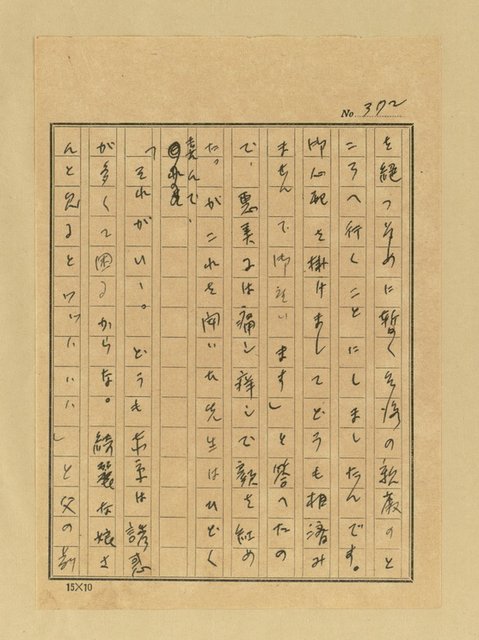 No. 372
を絶つために暫く の親戚のと
ころへ行くことにしましたんです。
御心配を掛けましてどうも相済み
ませんで御座います」と答へたの
で、恵美子は痛し痒しで顔を紅め
たつがこれを聞いた先生はひどく
喜んで、
「それがいゝ。どうも東京は誘惑
が多くて困るからな。綺麗な娘さ
んと見るとワッハハハ」と父の
15×10